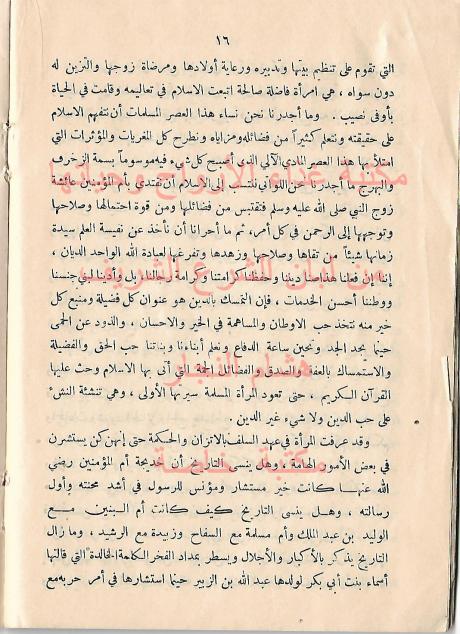 ١٦
التي تقوم على تنظيم بيتها وتدبيره ورعاية أولادها ومرضاة زوجها والتزين له
دون سواه ، هي امرأة فاضلة صالحة اتبعت الاسلام في تعاليمه وقامت في الحياة
بأوفى نصيب . وما أجدرنا نحن نساء هذا العصر المسلمات أن نتفهم الاسلام
على حقيقته ونتعلم كثيراً من فضائله ومزاياه ونطرح كل المغريات والمؤثرات التي
امتلأ بها هذا العصر المادي الآلي الذي أصبح كل شيء فيه موسوماً بسمة الزخرف
والبهرج ما أجدرنا نحن اللواتي ننتسب إلى الاسلام أن نقتدي بأم المؤمنين عائشة
زوج النبي صلى الله عليه وسلم فنقتبس من فضائلها ومن قوة احتمالها وصلاحها
وتوجهها إلى الرحمن في كل أمر، ثم ما أحرانا أن نأخذ عن نفيسة العلم سيدة
زمانها شيئاً من تقاها وصلاحها وزهدها وتفرغها لعبادة الله الواحد الديان ،
إننا إن فعلنا هذا صنا ديننا وحفظنا كرامتنا وكرامة رجالنا، بل وأدينا لبني جنسنا
ووطننا أحسن الخدمات ، فإن التمسك بالدين هو عنوان كل فضيلة ومنبع كل
خير منه نتخذ حب الاوطان والمساهمة في الخير والاحسان ، والذود عن الحمى
حينما يجد الجد وتحين ساعة الدفاع ونعلم أبناءنا وبناتنا حب الحق والفضيلة
والاستمساك بالعفة والصدق والفضائل الجمة التي أتى بها الاسلام وحث عليها
القرآن الكريم . حتى تعود المرأة المسلمة سيرتها الأولى ، وهي تنشئة النشء
على حب الدين ولا شيء غير الدين .
وقد عرفت المرأة في عهد السلف بالاتزان والحكمة حتى إنهن كن يستشرن
في بعض الأمور الهامة ، وهل ينسى التاريخ أن خديجة أم المؤمنين رضي
الله عنها كانت خير مستشار ومؤنس للرسول في أشد محنته وأول
رسالته ، وهل ينسى التاريخ كيف كانت أم البنين مع
الوليد بن عبد الملك وأم مسلمة مع السفاح وزبيدة مع الرشيد ، وما زال
التاريخ يذكر بالأكبار والأجلال ويسطر بمداد الفخر الكلمة الخالدة التي قالتها
أسماء بنت أبي بكر لولدها عبد الله بن الزبير حينما استشارها في أمر حربه مع
مكتبة غذاء الأرواح وحياتها
من لسان الشرع الشريف
هشام النجار
مكتبة خاصة